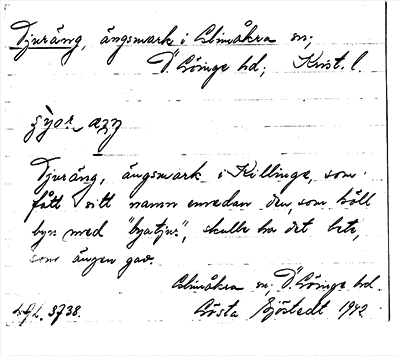 Tjuräng, ängsmark i Glimåkra sn;
Ö. Göinge hd; Krist. l.
Tjuräng, ängsmark i Killinge, som
fått sitt namn emedan den, som höll
byn med "byatjur", skulle ha det bete,
som ängen gav.
Glimåkra sn; Ö. Göinge hd.
Gösta Sjöstedt 1942